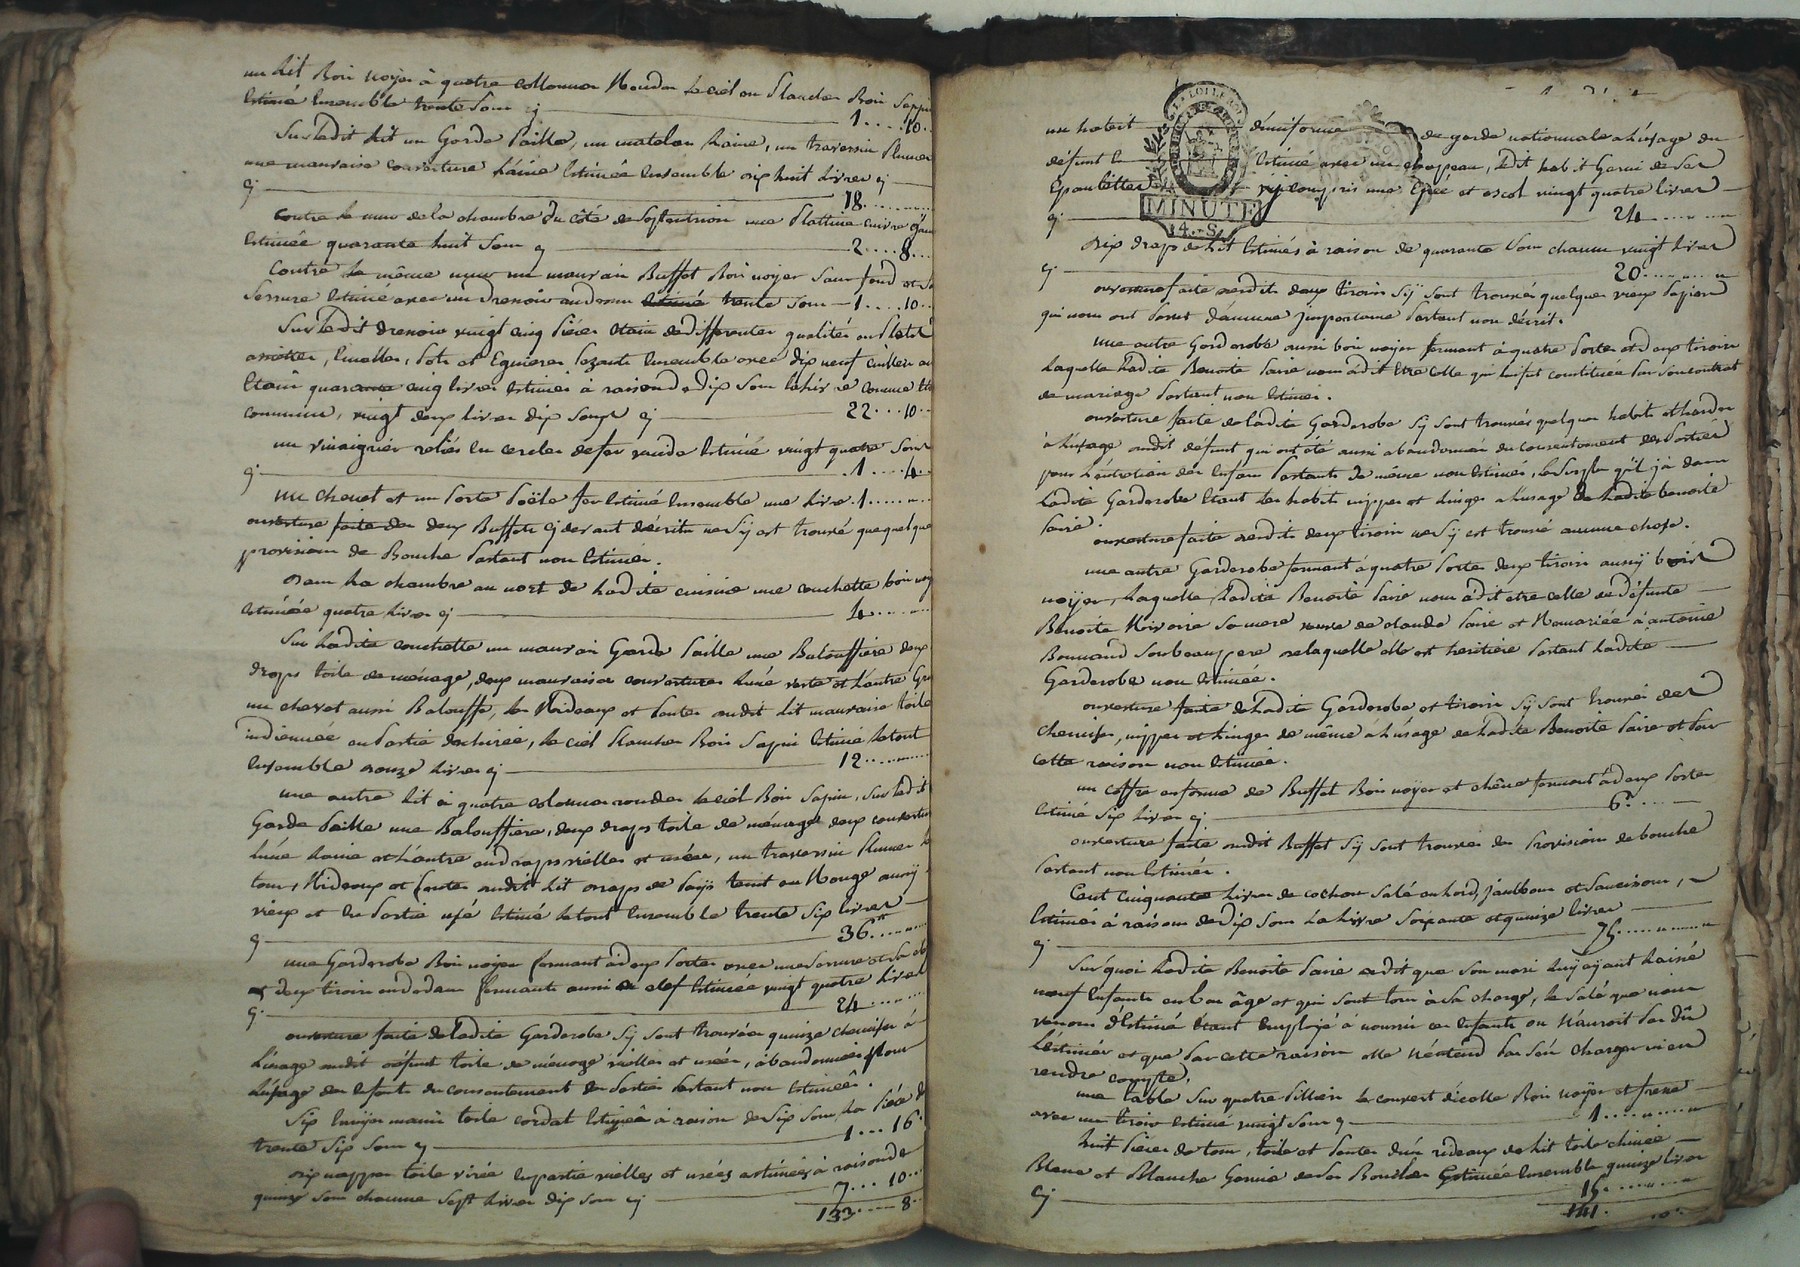 un Lit Bois noyer à quatre collonnes Rondes le ciel en Planches Bois Sappin
Estimé Ensemble trente Sous cj 1....10..
Sur ledit Lit un Garde Paille, un matelas Laine, un traversin Plumes
une mauvaise couverture Laine Estimée Ensemble dix huit Livres cj
cj 18.........
Contre le mur de la chambre du côté de Septentrion une Plattine cuivre
Estimée quarante huit Sous cj 2....8...
Contre le même mur un mauvais Buffet Bois noyer Sans fond et
Serrure Estimé avec un dressoir au dessus Estimé trente Sous 1....10..
Sur ledit dressoir vingt cinq Pièces Etain de differentes qualités en Plats
assiettes, Ecuelles, Pots et Eguieres Pezants Ensemble avec dix neuf cuilleres
Etain quarante cinq livres Estimés à raison de dix Sous la livre comme
commun, vingt deux livres dix Sous cj 22...10..
un vinaigrier reliés en cercles de fer vuide Estimé vingt quatre Sous
cj 1....4..
un chenet et un Porte Poële fer Estimé Ensemble une livre 1.......
ouverture faite des deux Buffets cj devant décrits ne Sÿ est trouvé que quelque
provisions de Bouche Partant non Estimés.
Dans la chambre au nort de ladite cuisine une couchette bois
Estimée quatre Livres cj 4.......
Sur ladite couchette un mauvais Garde Paille une Balouffiere deux
draps toile de ménage, deux mauvaises couvertures L'une verte et L'autre
un chevet aussi Balouffe, les Rideaux et Pantes audit Lit mauvaise toile
indiennée en Partie déchirée, le ciel Planches Bois Sapin Estimé le tout
Ensemble douze Livres cj 12.........
une autre Lit à quatre colonnes rondes le ciel Bois Sapin, Sur ledit
Garde Paille une Balouffiere, deux draps toile de ménage deux couvertures
L'une Laine et L'autre en draps vielles et usées, un traversin Plumes
tour, Rideaux et Pantes audit Lit draps de Païs teint en Rouge aussÿ
vieux et En Partie usé Estimé le tout Ensemble trente Six livres
cj 36.......
une Garderobe Bois noyer fermant à deux Portes avec une Serrure et Sa clef
deux tiroirs en dedans fermants aussi à clef Estimée vingt quatre Livres
cj 24.......
ouverture faite de ladite Garderobe Sÿ Sont trouvées quinze chemises à
L'usage audit défunt toile de ménage vielles et usées, abandonnées pour
L'usage des Enfants du consentement des Parties Partant non Estimées.
Six Essuye mains toile cordat Estimés à raison de Six Sous la Pièce
trente Six Sous cj 1....16.
dix nappes toile virée En partie vielles et usées estimées à raison de
quinze Sous chacune Sept Livres dix Sous cj 7...10..
133....8..
un habit d'uniforme de garde nationnale à L'usage du
défunt Estimé avec un chapeau, ledit habit Garni de Ses
Epaulettes y compris une Epée et vingt quatre livres
MINUTE
4.-S.
cj 24.......
dix draps de Lit Estimés à raison de quarante Sous chacun vingt Livres
cj 20.......
ouverture faite desdits deux tiroirs Sÿ Sont trouvés quelques vieux Papiers
qui nous ont Parut d'aucune Importance Partant non décrit.
une autre Garderobe aussi bois noyer fermant à quatre Portes et deux tiroirs
Laquelle Ladite Benoite Paire nous à dit Etre celle qui lui fut constituée Par Son contrat
de mariage Partant non Estimée.
ouverture faite de ladite Garderobe Sÿ Sont trouvés quelques habits et hardes
à L'usage audit défunt qui ont été aussi abandonnés du consentement des Parties
pour L'entretien des Enfans Partants de même non Estimés, le Surplus qu'il ÿ à dans
Ladite Garderobe Etant les habits nippes et Linges à L'usage de Ladite benoite
Paire.
ouverture faite desdits deux tiroirs ne Sÿ est trouvé aucune chose.
une autre Garderobe fermant à quatre Portes deux tiroirs aussÿ bois
noÿer, Laquelle Ladite Benoite Paire nous à dit etre celle de défunte
Benoite Sa mere veuve de claude Paire et Remariée à antoine
Bonnand Son beaupere de laquelle elle est heritiere Partant Ladite
Garderobe non Estimée.
ouverture faite de Ladite Garderobe et tiroirs Sÿ Sont trouvés des
chemises, nippes et Linges de même à L'usage de Ladite Benoite Paire et Par
cette raison non Estimés.
un coffre en forme de Buffet Bois noyer et chêne fermant à deux Portes
Estimé Six Livres cj 6.......
ouverture faite audit Buffet Sÿ Sont trouvés des Provisions de bouche
Partant non Estimés.
Cent cinquante Livres de cochon Salé en Lard, Jambons et Saucissons,
Estimés à raison de dix Sous La Livre Soixante et quinze Livres
cj 75.........
Sur quoi Ladite Benoite Paire à dit que Son mari Luÿ ayant Laissé
neuf Enfants en bas âge et qui Sont tous à Sa charge, le Salé que nous
venons d'Estimé Etant Employé à nourrir ces Enfants on N'auroit Pas dû
L'Estimer et que Par cette raison elle N'entend Pas S'en charger ni en
rendre compte.
une Table Sur quatre Pilliers le couvert d'écolle Bois noÿer et frene
avec un tiroir Estimé vingt Sous cj 1.......
huit Pièces de tour, toile et Pantes d'un rideaux de Lit toile chinée
Blanc et Blanche Garnie de Ses Boucles Estimée Ensemble quinze Livres
cj 15.......
141.